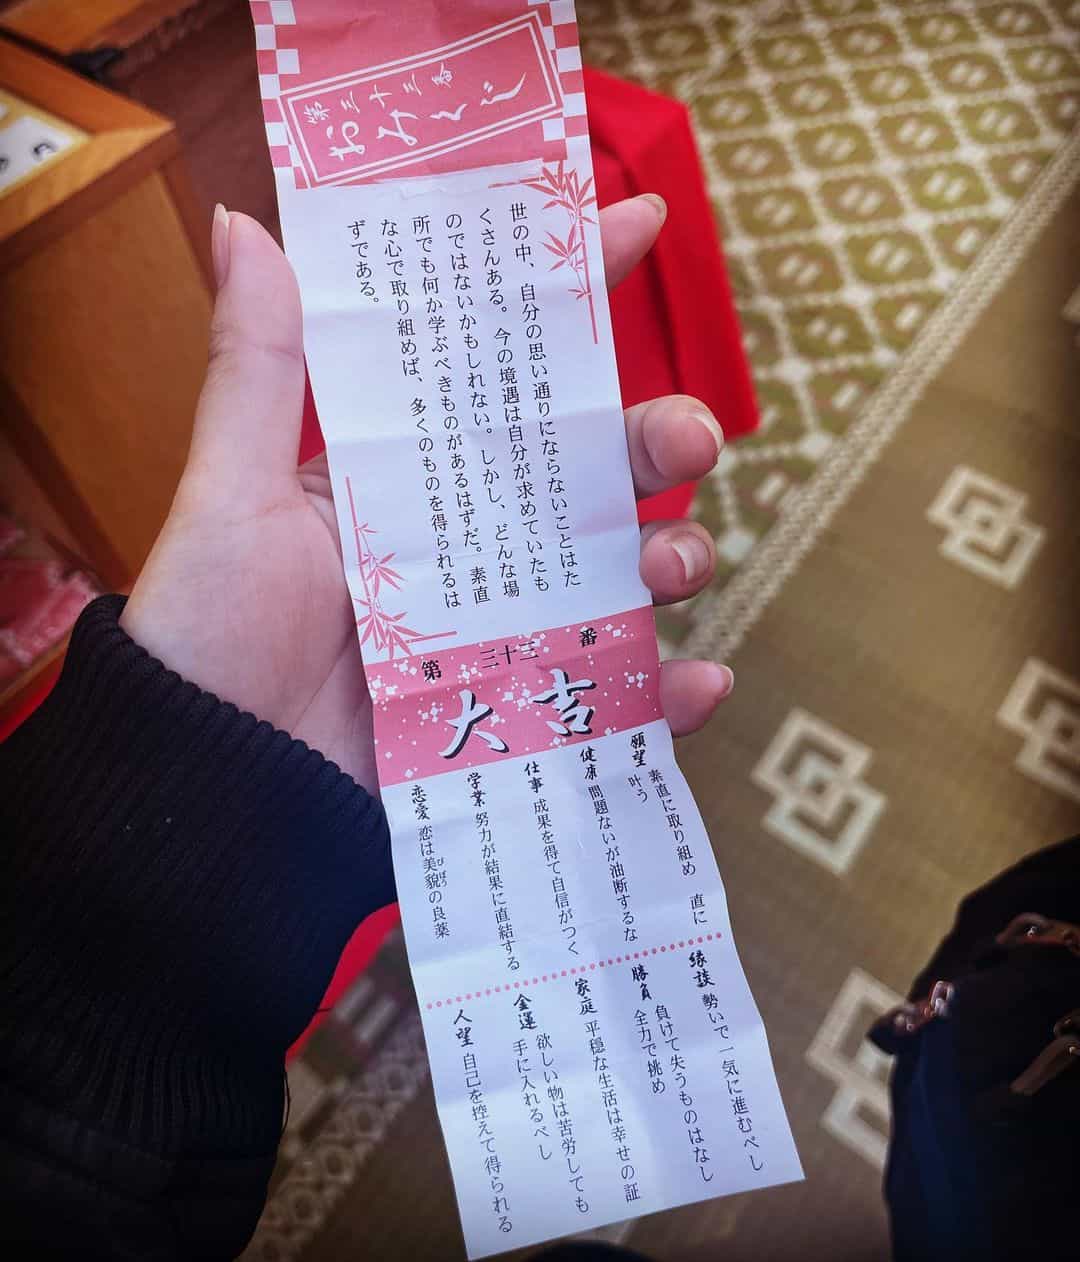 第三十三番
おみくじ
世の中、自分の思い通りにならないことはた
くさんある。今の境遇は自分が求めていたも
のではないかもしれない。しかし、どんな場
所でも何か学ぶべきものがあるはずだ。素直
な心で取り組めば、多くのものを得られるは
ずである。
第 三十三 番
大吉
願望 素直に取り組め 直に
叶う
健康 問題ないが油断するな
仕事 成果を得て自信がつく
学業 努力が結果に直結する
恋愛 恋は美貌の良薬
びぼう
縁談 勢いで一気に進むべし
勝負 負けて失うものはなし
全力で挑め
家庭 平穏な生活は幸せの証
金運 欲しい物は苦労しても
手に入れるべし
人望 自己を控えて得られる